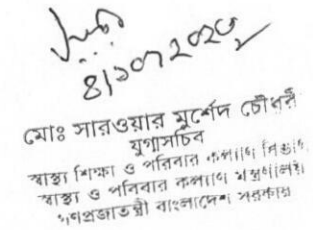 মোঃ সারওয়ার মুর্শেদ চৌধুরী
যুগ্মসচিব
স্বাস্থ্য শিক্ষা ও পরিবার কল্যাণ বিভাগ
স্বাস্থ্য ও পরিবার কল্যাণ মন্ত্রণালয়
গণপ্রজাতন্ত্রী বাংলাদেশ সরকার